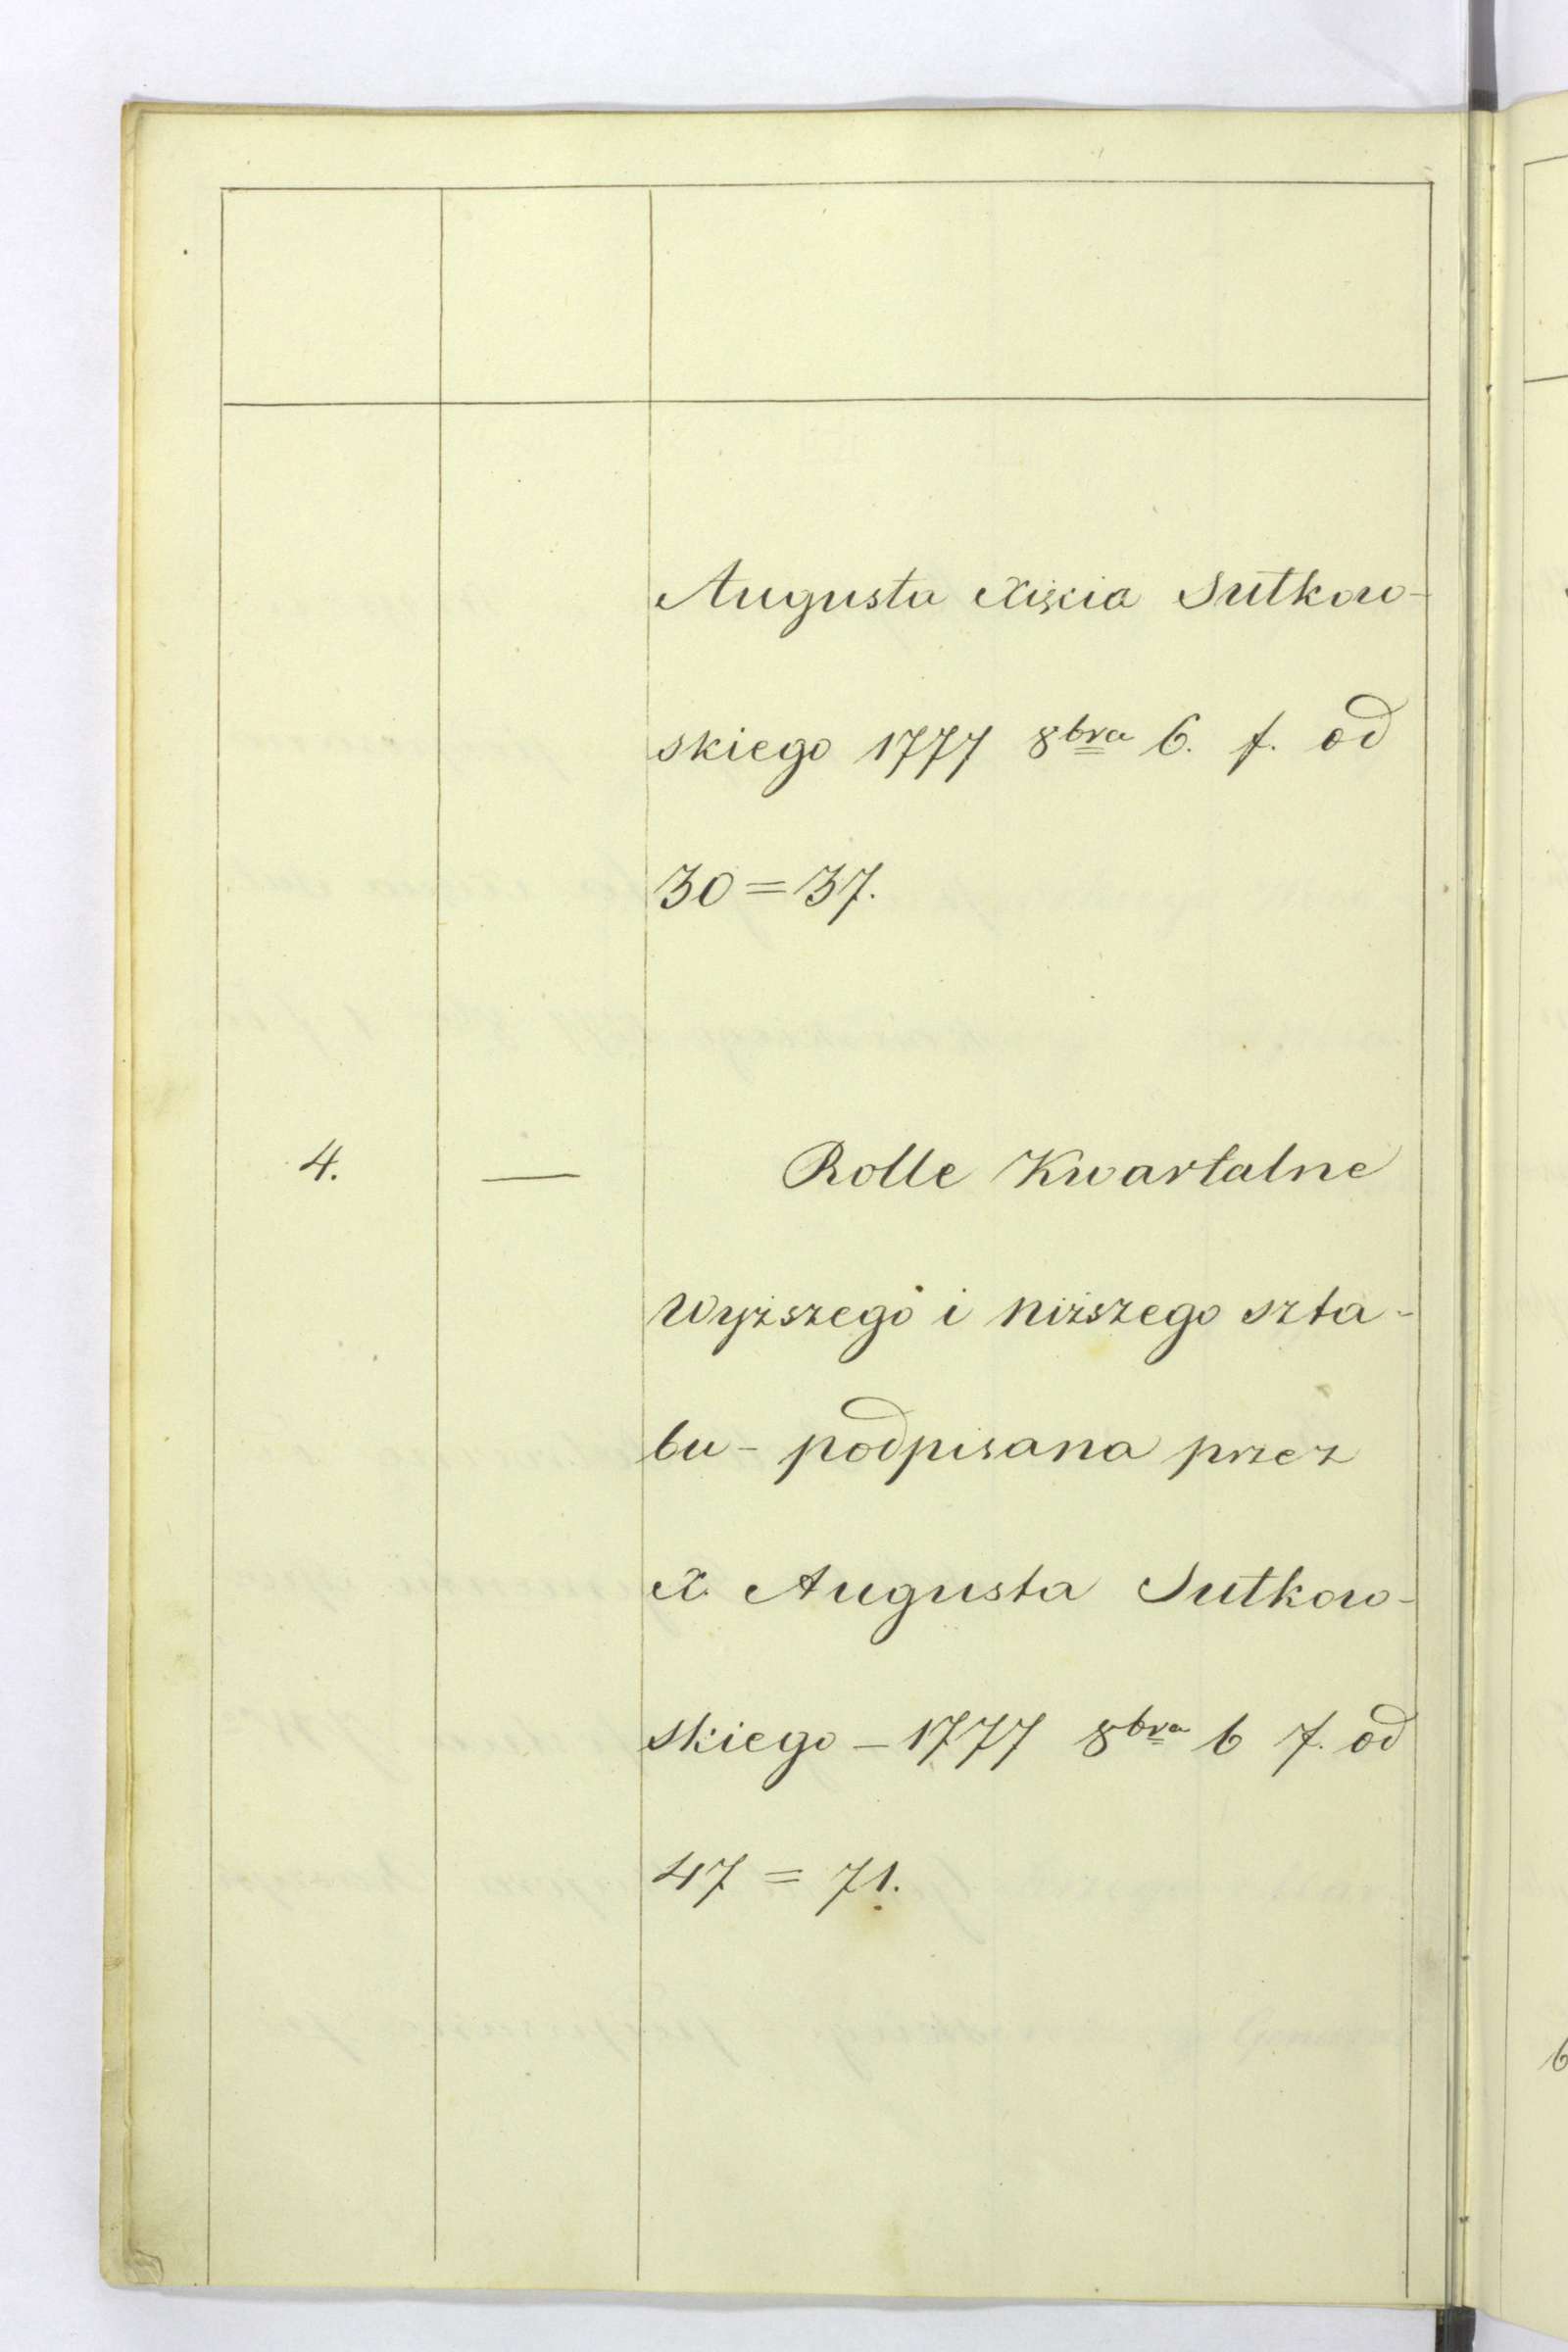 Augusta Xięcia Sułkow-
skiego 1777 8bra 6. f. od
30=37.
4. — Rolle Kwartalne
wyższego i niższego szta-
bu - podpisana przez
X. Augusta Sułkow-
skiego - 1777 8bra 6 f. od
47 = 71.